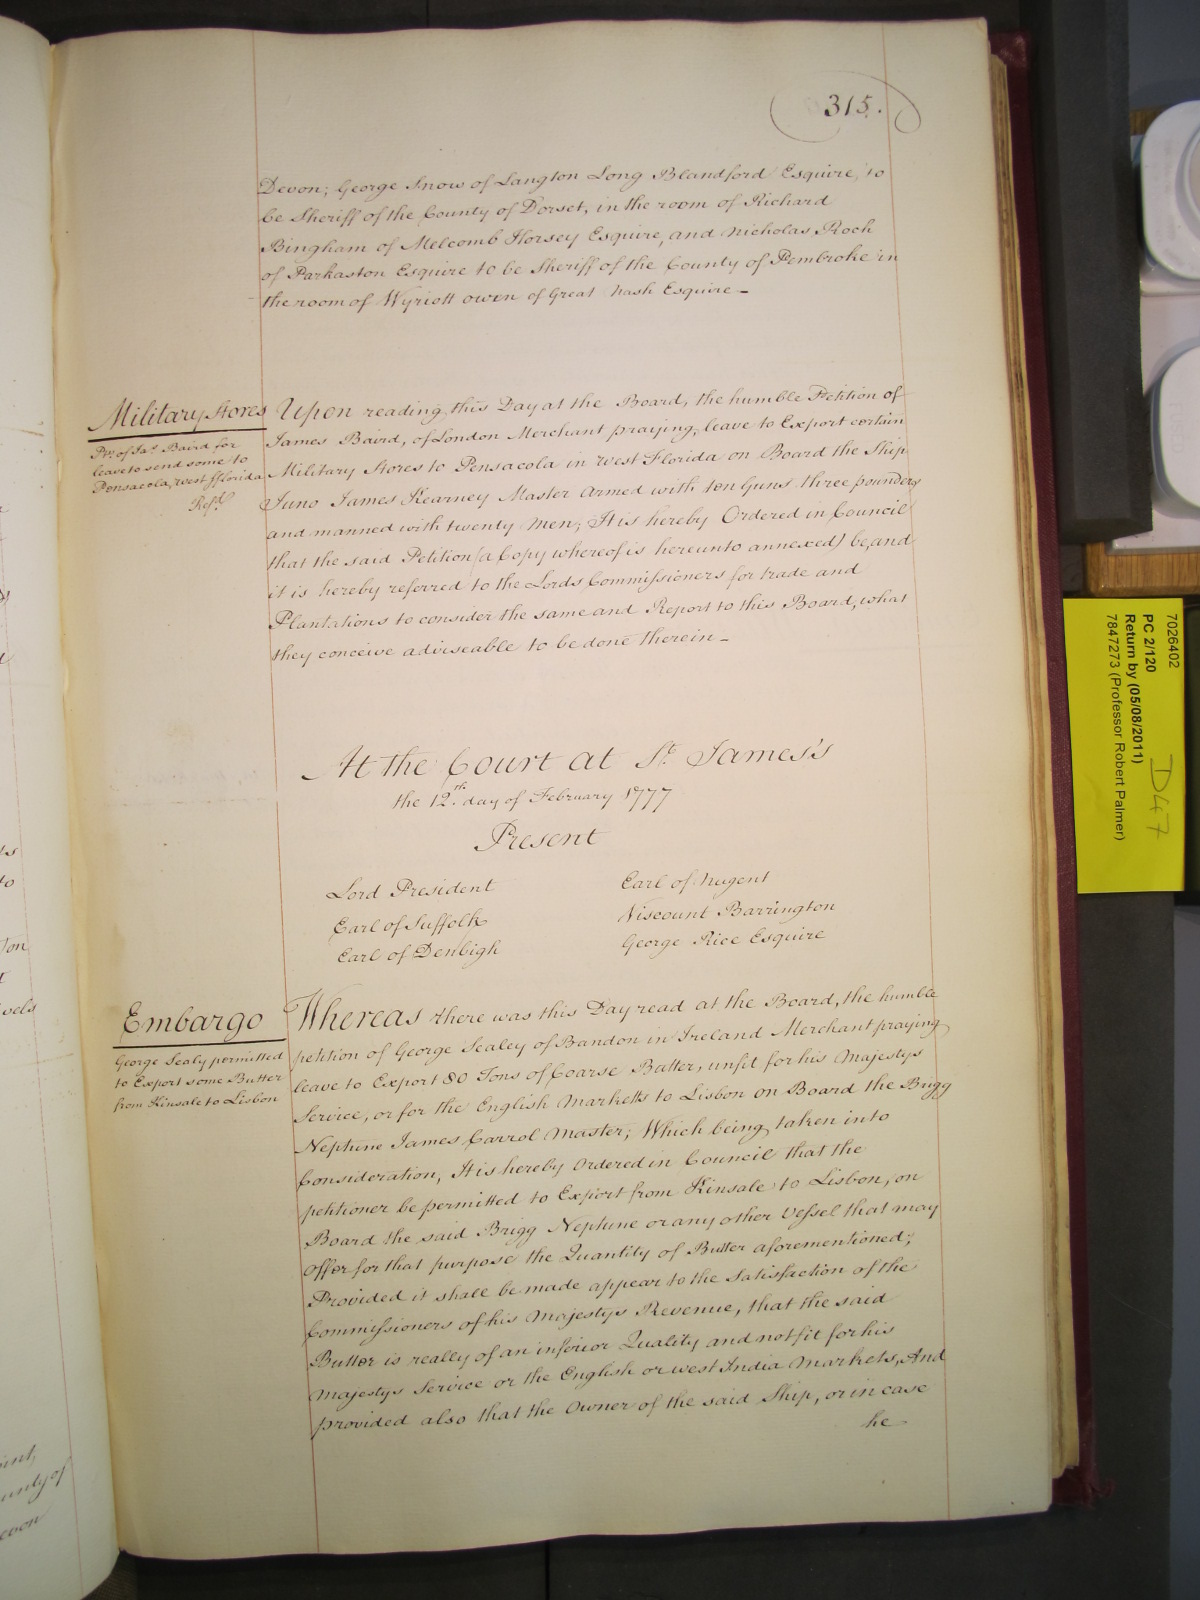 315.
Devon; George Snow of Langton Long Blandford Esquire, to
be Sheriff of the County of Dorset, in the room of Richard
Bingham of Melcomb Horsey Esquire, and Nicholas Roch
of Parkaston Esquire to be Sheriff of the County of Pembroke in
the room of Wyriott Owen of Great Nash Esquire
Military Stores
Pet. of Jas. Baird for
leave to send some to
Pensacola, West Florida
Refd.
Upon reading this Day at the Board, the humble Petition of
James Baird, of London Merchant praying, leave to Export certain
Military Stores to Pensacola in West Florida on Board the Ship
Juno James Kearney Master armed with ten Guns three pounders
and manned with twenty Men; It is hereby Ordered in Council
that the said Petition (a Copy whereof is hereunto annexed) be, and
it is hereby referred to the Lords Commissioners for trade and
Plantations to consider the same and Report to this Board, what
they conceive adviseable to be done therein
At the Court at St. James's
the 12th. day of February 1777
Present
Lord President
Earl of Suffolk
Earl of Denbigh
Earl of Nugent
Viscount Barrington
George Rice Esquire
Embargo
George Sealy permitted
to Export some Butter
from Kinsale to Lisbon
Whereas there was this Day read at the Board, the humble
petition of George Sealey of Bandon in Ireland Merchant praying
leave to Export 80 Tons of Coarse Butter, unfit for his Majestys
Service, or for the English Marketts to Lisbon on Board the Brigg
Neptune James Carrol Master; Which being taken into
Consideration, It is hereby Ordered in Council that the
petitioner be permitted to Export from Kinsale to Lisbon, on
Board the said Brigg Neptune or any other Vessel that may
offer for that purpose the Quantity of Butter aforementioned;
Provided it shall be made appear to the Satisfaction of the
Commissioners of his Majestys Revenue, that the said
Butter is really of an inferior Quality and not fit for his
Majestys Service or the English or West India Markets, And
provided also that the Owner of the said Ship, or in case
he
7026402
PC 2/120
Return by (05/08/2011)
7847273 (Professor Robert Palmer)
D47